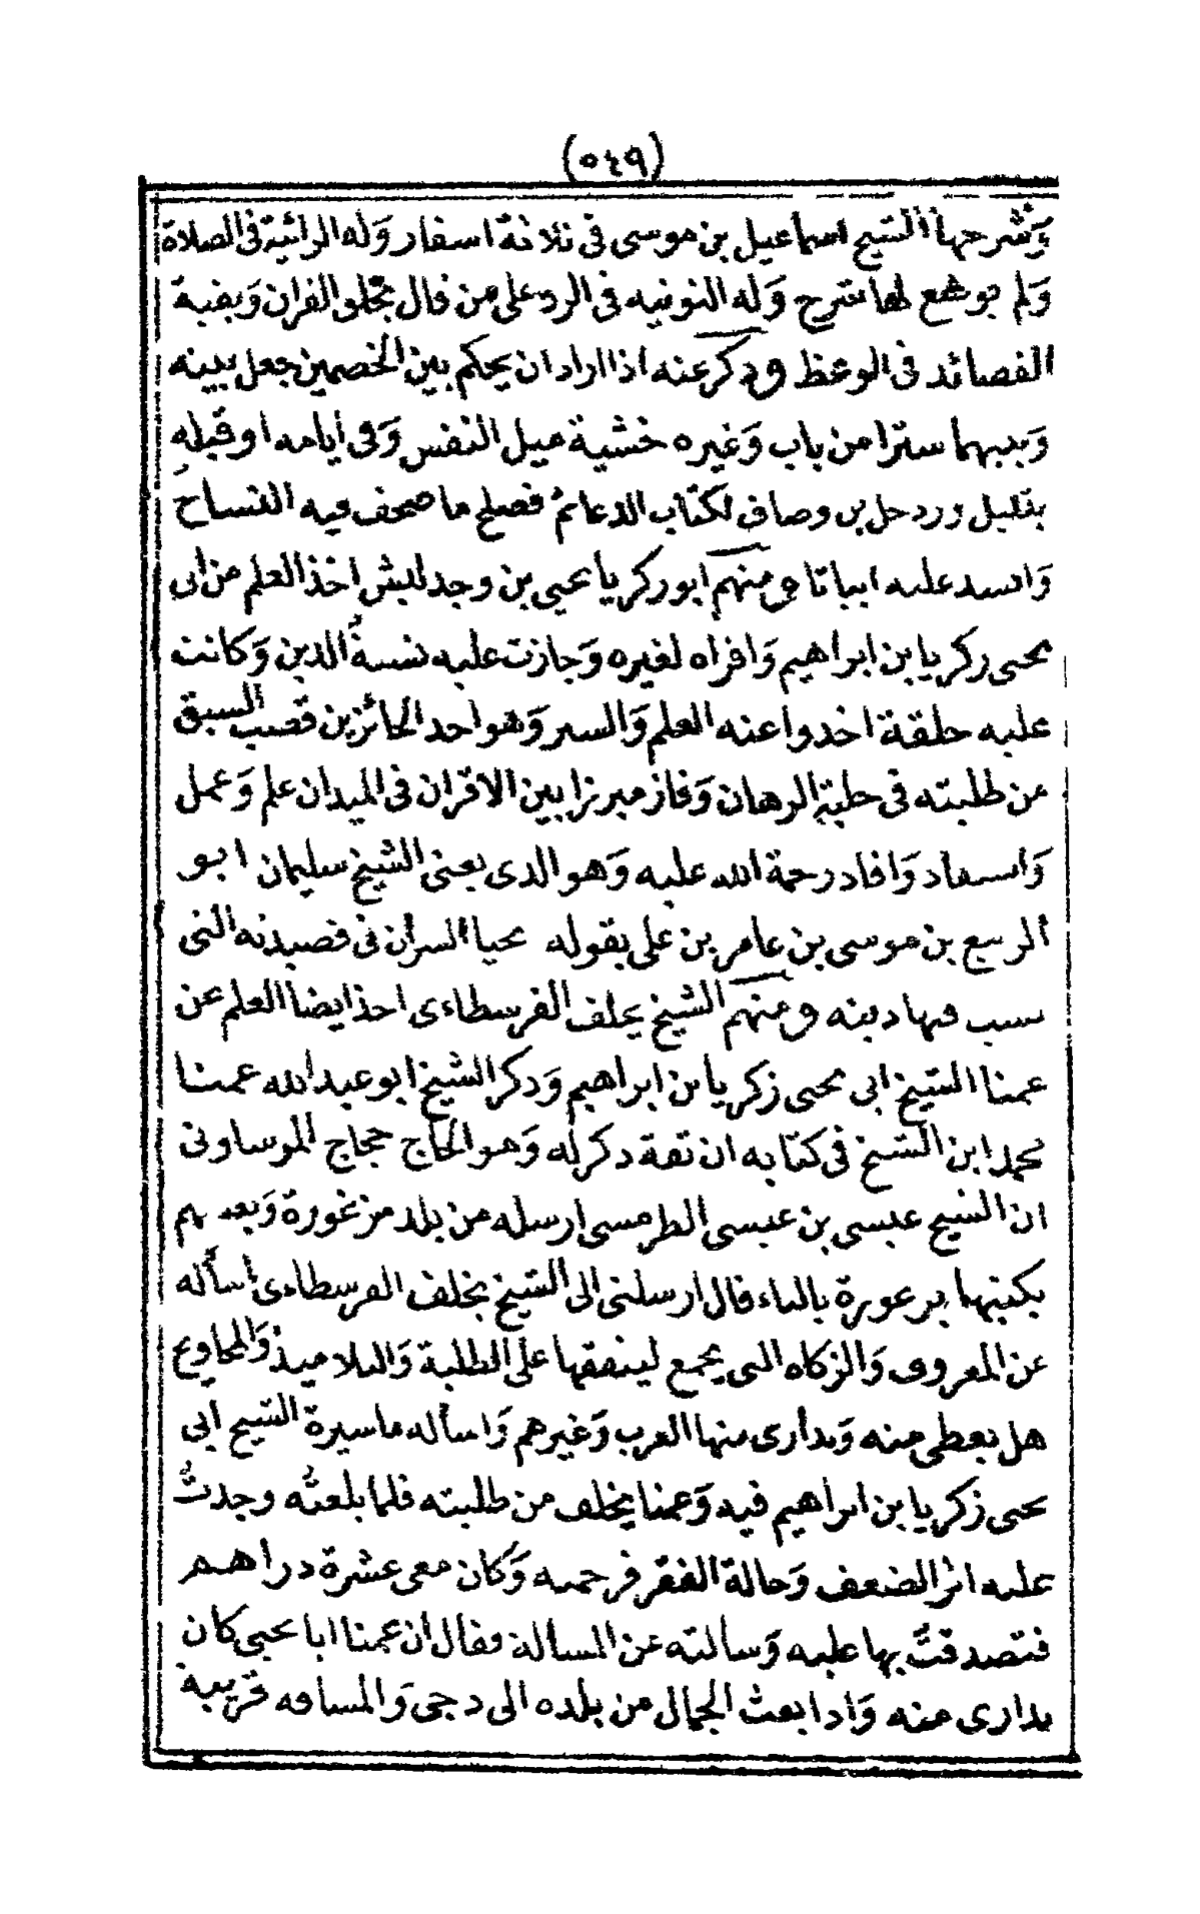 (٥٤٩)
يشرحها الشيخ اسماعيل بن موسى في ثلاثة اسفار وَله الرائية في الصلاة
وَلم يوضع لها شرح وَله النونيه في الرد على من قال بخلق القرآن وَبقية
القصائد في الوعظ وذكر عنه اذا اراد ان يحكم بين الخصمين جعل بينه
وَبينهما سترا من باب وَغيره خشية ميل النفس وَفي ايامه او قبله
بقليل ورد حل بن وصاف لكتاب الدعائم فصلح ما صحف فيه النساخ
وَانسد عليه ابياتا ومنهم ابو زكريا يحيى بن وجدليش اخذ العلم من ابى
يحيى زكريا بن ابراهيم وَاقراه لغيره وَجازت عليه نسبة الدين وَكانت
عليه حلقة اخدوا عنه العلم وَالسير وَهو احد الحائزين قصب السبق
من طلبته في حلبة الرهان وَفاز مبرزا بين الاقران في الميدان علم وَعمل
وَاستفاد وَافاد رحمة الله عليه وَهو الدى يعنى الشيخ سليمان ابو
الربيع بن موسى بن عامر بن على بقوله يحيا السران في قصيدته التى
نسب فيها دينه ومنهم الشيخ يخلف الفرسطاءى احذ ايضا العلم عن
عمنا الشيخ ابى يحيى زكريا بن ابراهيم وَدكر الشيخ ابو عبد الله عمنا
محمد ابن الشيخ في كتابه ان ثقة دكر له وَهو الحاج حجاج الموساونى
ان الشيخ عيسى بن عيسى الطرمسى ارسله من بلد مزغورة وَبعضهم
يكتبها برعورة بالباء قال ارسلنى الى الشيخ يخلف الفرسطاءى اسأله
عن المعروف وَالزكاه التى يجمع لينفقها على الطلبة وَالتلاميذ وَالمحاويج
هل يعطى منه وَيدارى منها العرب وَغيرهم وَاسأله ما سيرة الشيخ ابى
يحيى زكريا بن ابراهيم فيه وَعمنا يخلف من طلبته فلما بلعتُه وجدتُ
عليه اثر الضعف وَحالة الفقر فرحمته وَكان معى عشرة دراهم
فتصدقتُ بها عليه وَسألته عن المسألة فقال ان عمنا ابا يحيى كان
يدارى منه وَادا بعث الجمال من بلده الى دجى وَالمسافه قريبة